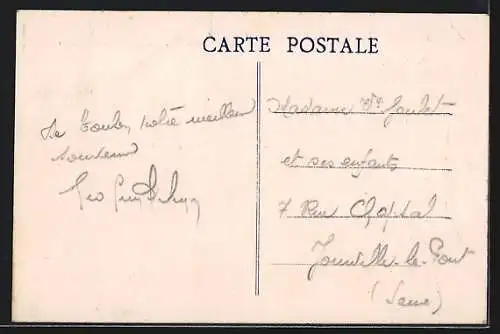 CARTE POSTALE
De Toulon, notre meilleur
souvenir
Madame Vve
et ses enfants
7 Rue Chaptal
Joinville-le-Pont
(Seine)